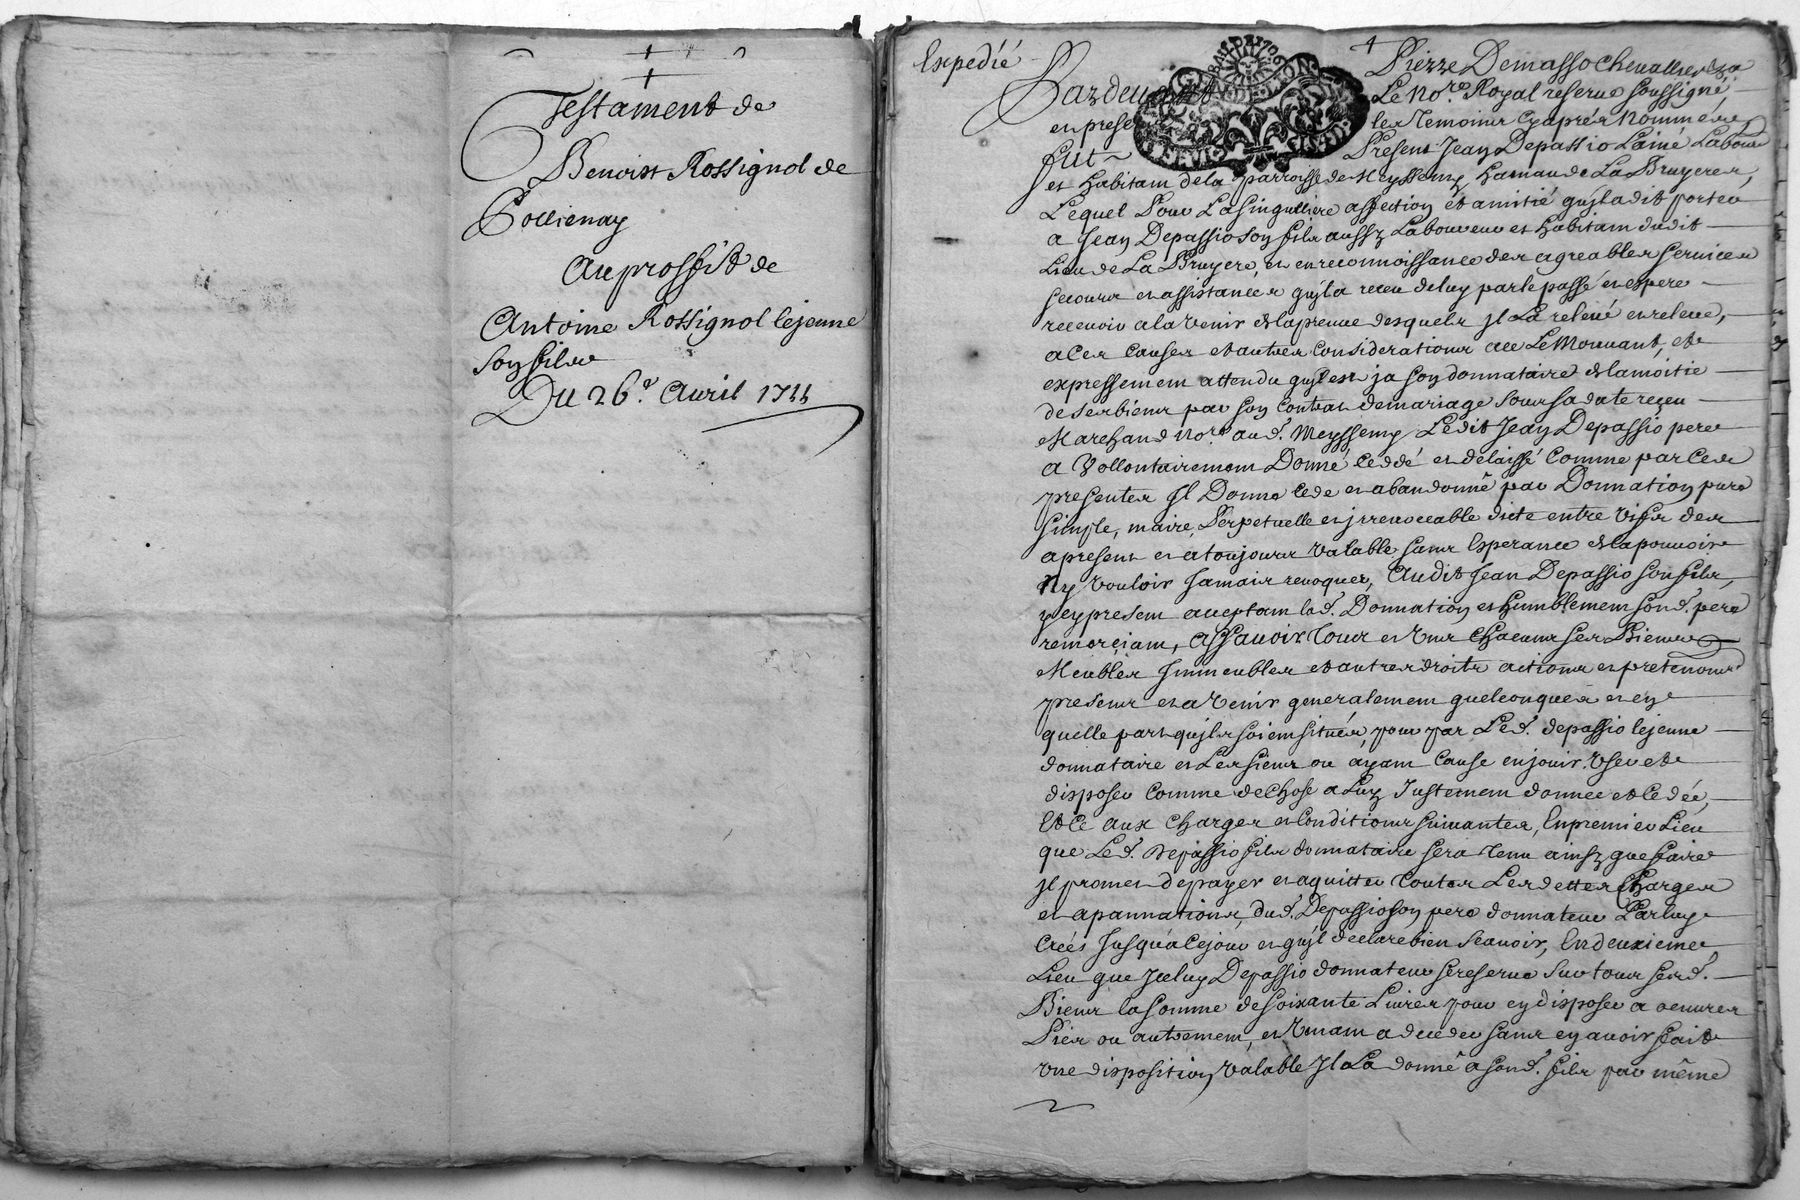 Testament de
Benoist Rossignol de
Collienay
Au proffit de
Antoine Rossignol le jeune
son fils
Du 26e. Avril 1744
Expedié
Pardevant Pierre Demasso chevallier &a
Le No.re Royal reservé soussigné,
en presence les temoins cyaprés nommés
fut present Jean Depassio L'ainé Laboureur
et habitant de la parroisse de Meyssemy hamau de La Bruyere,
Lequel Pour La singulliere affection et amitié qu'jl a dit porter
a Jean Depassio son fils aussy Laboureur et habitant dudit
Lieu de La Bruyere, et en reconnoissance des agreables services
secours et assistances qujl a receu de luy par le passé et espere
recevoir a l'avenir de la preuve desquels jl l'a relevé et releve,
a ces causes et autres considerations a ce Le Mouvant, et
expressement attendu qujl est ja son donnataire de la moitié
de ses biens par son contrat de mariage sous sa date receu
Marchand No.re aud. Meyssemy Ledit Jean Depassio pere
a vollontairement Donné cedé et delaissé comme par ces
presentes Jl Donne cede et abandonne par Donnation pure
simple, maire, Perpetuelle et jrrevoccable dicte entre vifs des
apresent et a toujours valable sans Esperance de la pouvoir
ny vouloir Jamais revoquer, Audit Jean Depassio son fils,
jcy present acceptant lad. Donnation et humblement sond. pere
remerciant, Assavoir Tous et uns chacuns ses Biens
Meubles Jmmeubles et autres droits actions et pretentions
presens et a venir generalement quelconques et en
quelle part qujls soient situés, pour par Led. depassio lejeune
donnataire et Les siens ou ayant cause en jouir, user et
disposer comme de chose a Luy Justement donnée et cedée,
Et ce aux charges et conditions suivantes, En premier Lieu
que Led. Depassio fils donnataire sera tenu ainsy que faire
jl promet de payer et aquitter toutes Les dettes charges
et apannations, dud. Depassio son pere donnateur Par luy
creés Jusqu'a ce jour et qujl declare bien scavoir, En deuxieme
Lieu que Jceluy Depassio donnateur se reserve sur tous sesd.
Biens la somme de soixante Livres pour en disposer a oeuvres
Pies ou autrement, et venant a deceder sans en avoir fait
une disposition valable Jl La donne a sond. fils par même